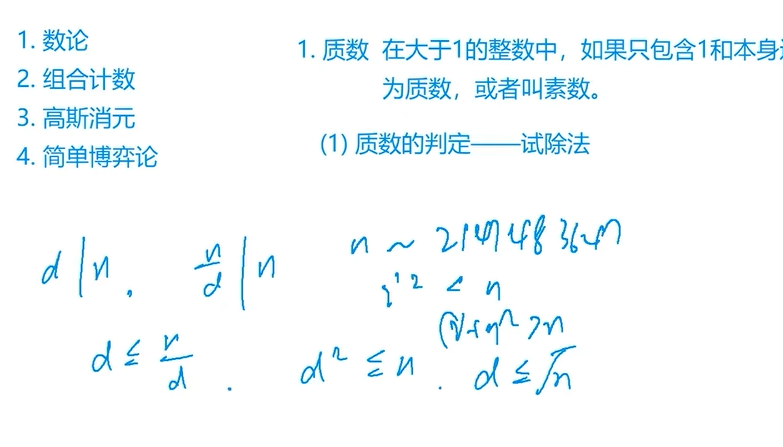 1. 数论
2. 组合计数
3. 高斯消元
4. 简单博弈论
1. 质数 在大于1的整数中，如果只包含1和本身
为质数，或者叫素数。
(1) 质数的判定——试除法
d | n . n/d | n
n ~ 2147483647
i² < n
² > n
d ≤ n/d . d² ≤ n . d ≤ √n